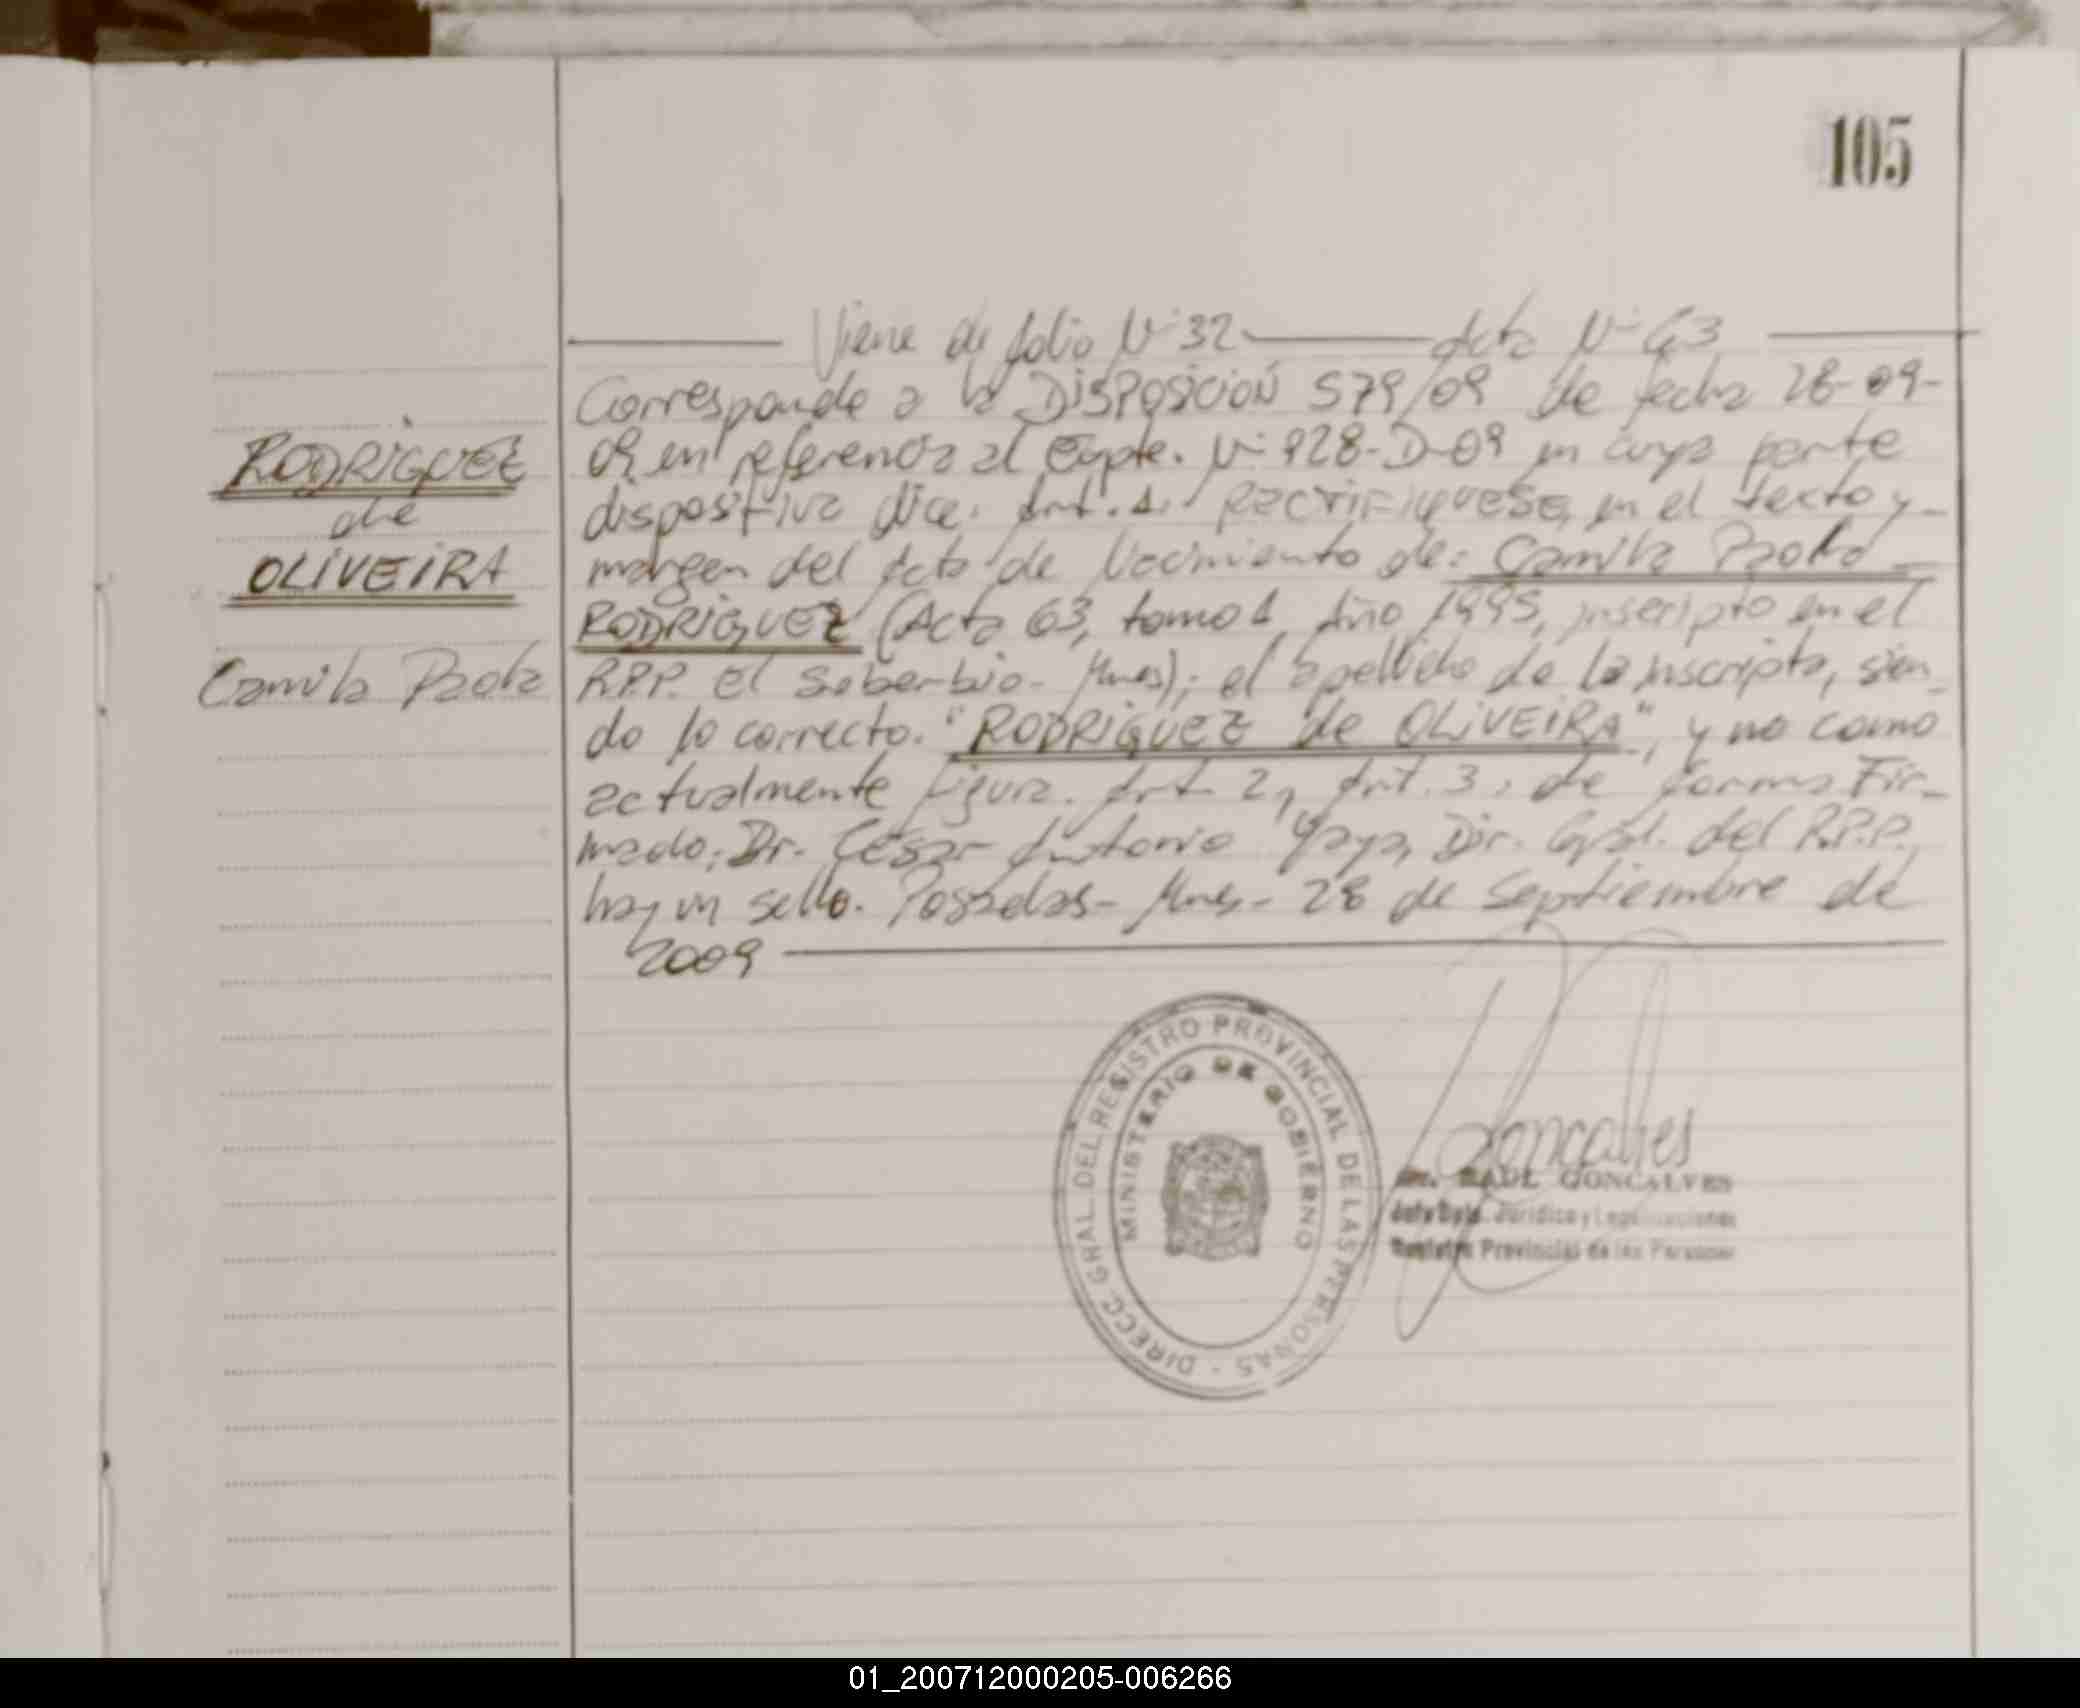 105
Viene de folio Nº 32 Acta Nº 63
Corresponde a la DISPOSICIÓN 579/09 de fecha 28-09-
09, en referencia al Expte. Nº 928-D-09 en cuya parte
dispositiva dice: Art. 1: RECTIFIQUESE, en el texto y
margen del Acta de Nacimiento de: Camila Paola
RODRIGUEZ (Acta 63, tomo 1 Año 1995, inscripto en el
R.P.P. El Soberbio - Mnes); el apellido de la inscripta, sien-
do lo correcto. "RODRIGUEZ de OLIVEIRA", y no como
actualmente figura. Art. 2, Art. 3, de forma. Fir-
mado: Dr. César Antonio Yaya, Dir. Gral. del R.P.P.
hay un sello. Posadas - Mnes - 28 de Septiembre de
2009
RODRIGUEZ
de
OLIVEIRA
Camila Paola
DIRECC. GRAL. DEL REGISTRO PROVINCIAL DE LAS PERSONAS -
MINISTERIO DE GOBIERNO
Goncalves
RAUL GONCALVES
Jefe Dpto. Jurídico y Legalizaciones
Registro Provincial de las Personas
01_200712000205-006266